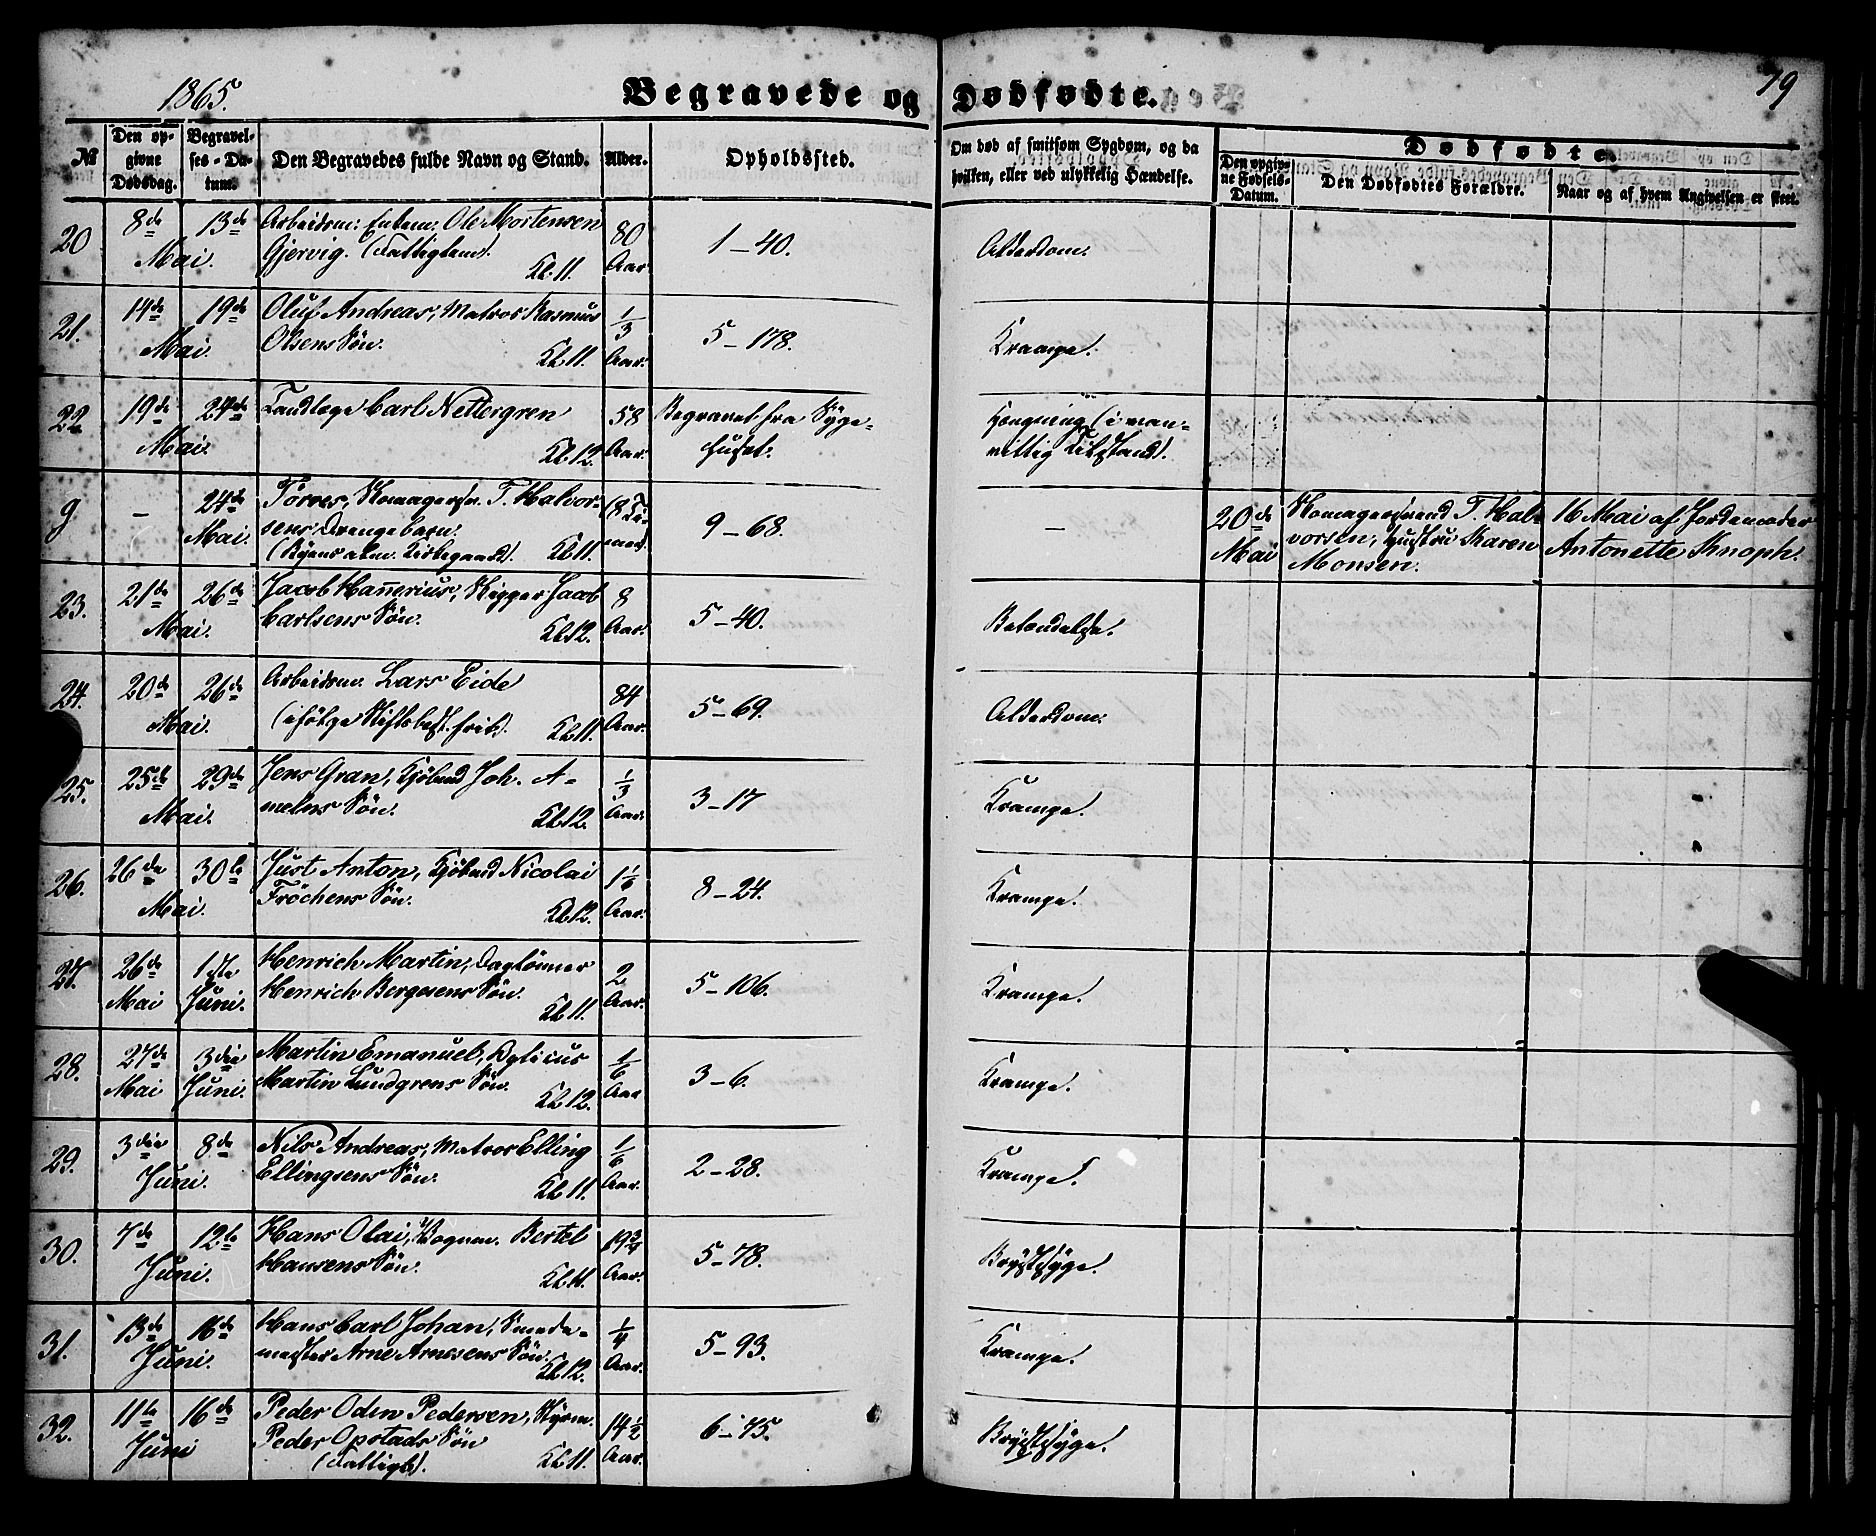 1865.
Begravede og Dødfødte.
79
№
Den opgivne Dødsdag.
Begravelses-Datum.
Den Begravedes fulde Navn og Stand.
Alder.
Opholdssted.
Om død af smitsom Sygdom, og da hvilken, eller ved ulykkelig Hændelse.
Dødfødte.
Den opgivne Fødsels-Datum.
Den Dødfødtes Forældre.
Naar og af hvem Angivelsen er skeet.
20 8de 13de Arbeidsm: Enkem: Ole Mortensen 80 1-40. Alderdom.
Mai. Gjervig. (Fattiglem). Kl. 11. Aar.
21. 14de 19de Oluf Andreas, Matros Rasmus 1/3 5-178. Krampe.
Mai. Olsens Søn. Kl. 11. Aar.
22. 19de 24de Tandlæge Carl Nettergren 58 Begravet fra Syge- Hængning (i van-
Mai. Kl. 12. Aar. huset. vittig Tilstand).
9 - 24de Tøroes, Skomagersv. T. Halvor- 9-68. - 20de Skomagersvend T. Hal- 16 Mai af Jordemoder
Mai. sens Drengebarn. Mai vorsen, Hustru Karen Antonette Knoph.
(Byens alm. Kirkegaard). Kl. 11. Monsen.
23. 21de 26de Jacob Hannerius, Rigger Jacob 8 5-40. Betændelse.
Mai. Carlsens Søn. Kl. 12. Aar.
24. 20de 26de Arbeidsm. Lars Eide 84 5-69. Alderdom.
Mai. (ifølge Stiftsbest. frit). Kl. 11. Aar.
25. 25de 29de Jens Gran, Kjøbmd Joh. A- 1/3 3-17 Krampe.
Mai. melns Søn. Kl. 12. Aar.
26. 26de 30te Just Anton, Kjøbmd Nicolai 1 1/6 8-24. Krampe.
Mai. Frøchens Søn. Kl. 12. Aar.
27. 26de 1ste Henrich Martin, Daglønner 2 5-106. Krampe.
Mai Juni. Henrich Bergesens Søn. Kl. 11. Aar.
28. 27de 3die Martin Emanuel, 1/6 3-6. Krampe.
Mai Juni. Martin Lundgrens Søn. Kl. 12. Aar
29. 3die 8de Nils Andreas, Matros Elling 1/6 2-28. Krampe.
Juni. Ellingsens Søn. Kl. 11. Aar.
30. 7de 12te Hans Olai, Vognm. Bertel 19 3/4 5-78. Brystsyge.
Juni. Hansens Søn. Kl. 11. Aar.
31. 13de 16de Hans Carl Johan, Smede- 1/4 5-93. Krampe.
Juni. mester Arne Arnesens Søn. Kl. 12. Aar.
32. 11te 16de Peder Oden Pedersen, Styrm. 14 1/2 6-75. Brystsyge.
Juni Peder Opstads Søn Aar.
(Fattigb). Kl. 11.